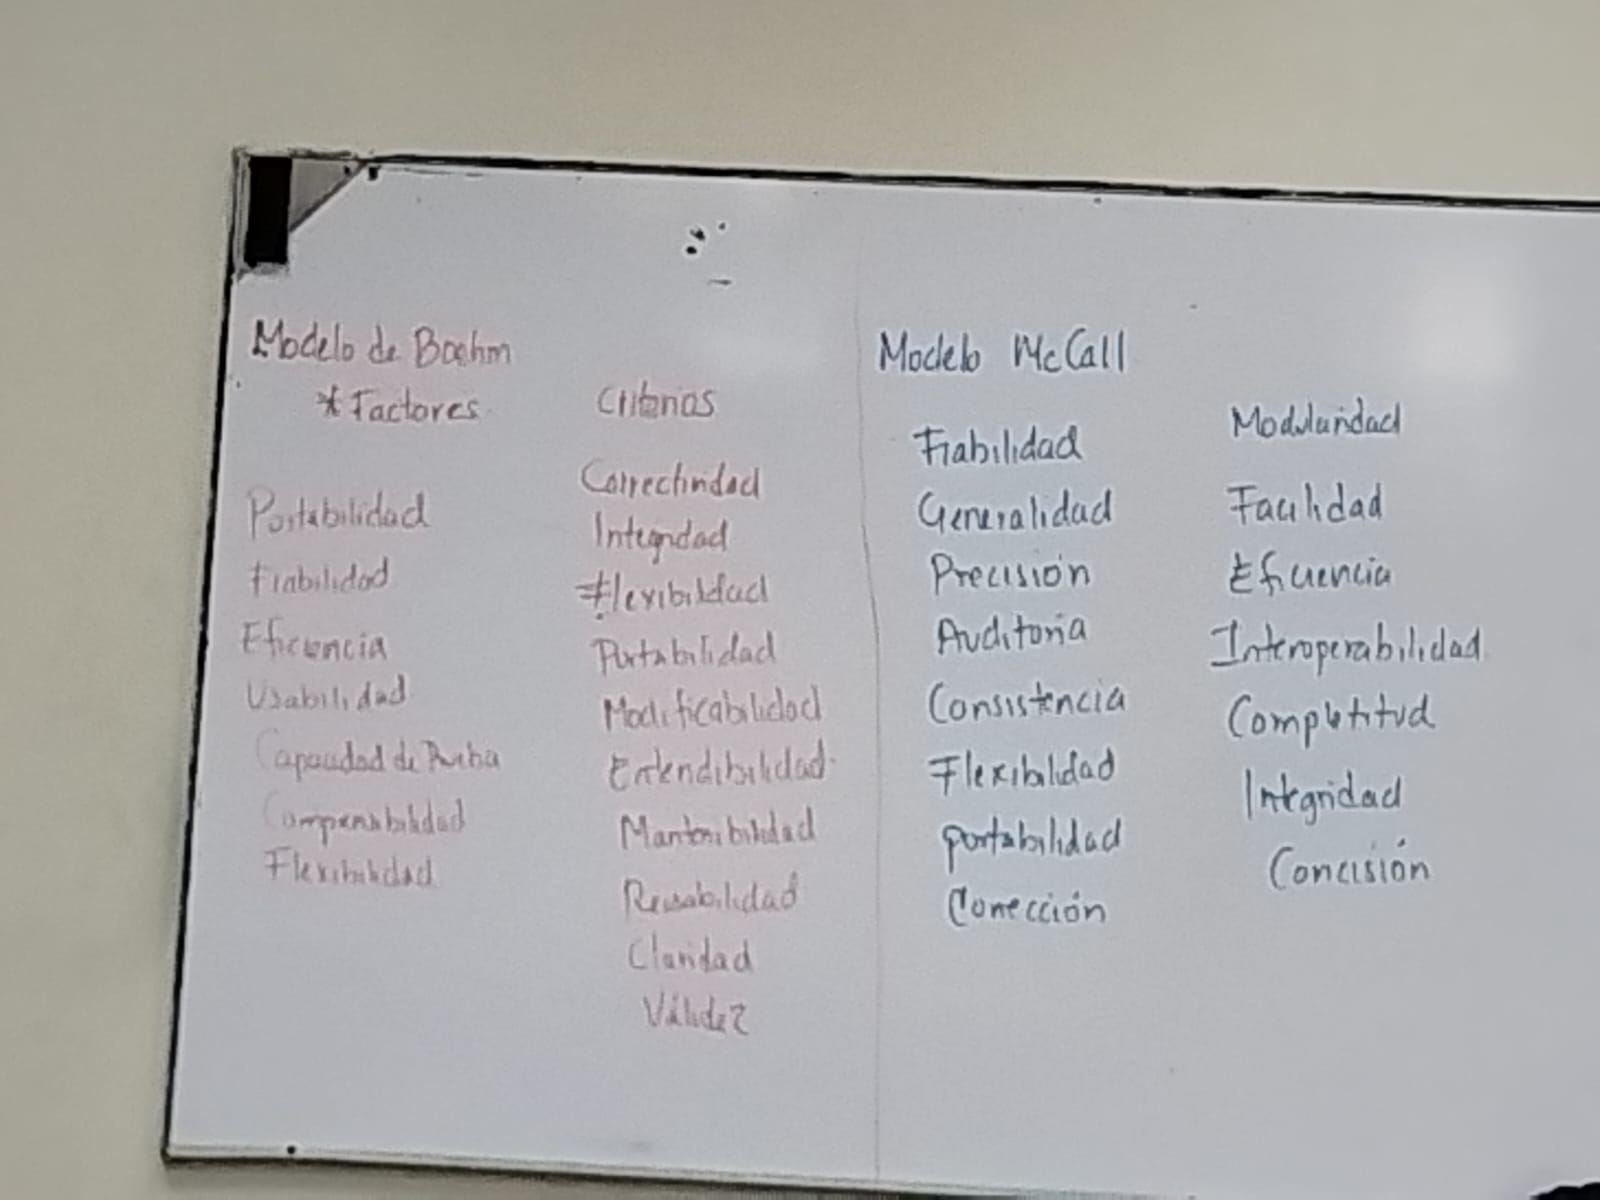 Modelo de Boehm
* Factores
Portabilidad
Fiabilidad
Eficiencia
Usabilidad
Capacidad de Prueba
Comprensibilidad
Flexibilidad
Criterios
Correctividad
Integridad
Flexibilidad
Portabilidad
Modificabilidad
Extendibilidad
Mantenibilidad
Reusabilidad
Claridad
Válidez
Modelo McCall
Fiabilidad
Generalidad
Precisión
Auditoria
Consistencia
Flexibilidad
portabilidad
Modularidad
Facilidad
Eficiencia
Interoperabilidad
Completitud
Integridad
Concisión